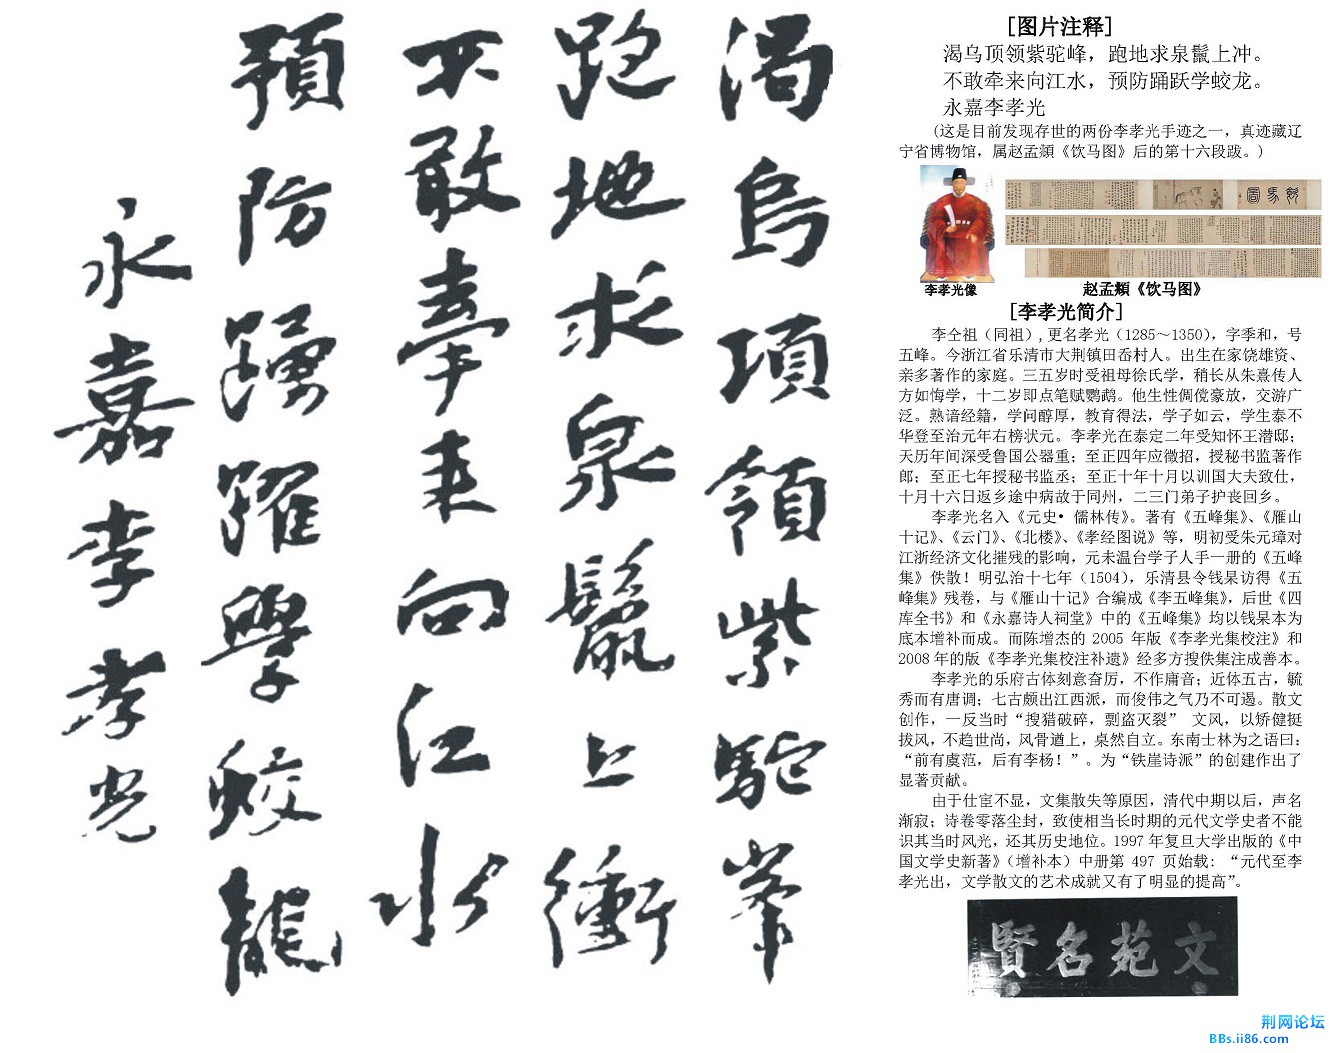 渴烏項領紫駝峯
跑地求泉鬣上衝
不敢牽来向江水
預防踴躍學蛟龍
永嘉李孝光
[图片注释]
渴乌顶领紫驼峰，跑地求泉鬣上冲。
不敢牵来向江水，预防踊跃学蛟龙。
永嘉李孝光
(这是目前发现存世的两份李孝光手迹之一，真迹藏辽
宁省博物馆，属赵孟頫《饮马图》后的第十六段跋。)
飲馬圖
李孝光像
赵孟頫《饮马图》
[李孝光简介]
李仝祖（同祖）,更名孝光（1285～1350），字季和，号
五峰。今浙江省乐清市大荆镇田岙村人。出生在家饶雄资、
亲多著作的家庭。三五岁时受祖母徐氏学，稍长从朱熹传人
方如悔学，十二岁即点笔赋鹦鹉。他生性倜傥豪放，交游广
泛。熟谙经籍，学问醇厚，教育得法，学子如云，学生泰不
华登至治元年右榜状元。李孝光在泰定二年受知怀王潜邸；
天历年间深受鲁国公器重；至正四年应徵招，授秘书监著作
郎；至正七年授秘书监丞；至正十年十月以训国大夫致仕，
十月十六日返乡途中病故于同州，二三门弟子护丧回乡。
李孝光名入《元史• 儒林传》。著有《五峰集》、《雁山
十记》、《云门》、《北楼》、《孝经图说》等，明初受朱元璋对
江浙经济文化摧残的影响，元末温台学子人手一册的《五峰
集》佚散！明弘治十七年（1504），乐清县令钱杲访得《五
峰集》残卷，与《雁山十记》合编成《李五峰集》，后世《四
库全书》和《永嘉诗人祠堂》中的《五峰集》均以钱杲本为
底本增补而成。而陈增杰的 2005 年版《李孝光集校注》和
2008 年的版《李孝光集校注补遗》经多方搜佚集注成善本。
李孝光的乐府古体刻意奋厉，不作庸音；近体五古，毓
秀而有唐调；七古颇出江西派，而俊伟之气乃不可遏。散文
创作，一反当时“搜猎破碎，剽盗灭裂” 文风，以矫健挺
拔风，不趋世尚，风骨遒上，桌然自立。东南士林为之语曰：
“前有虞范，后有李杨！”。为“铁崖诗派”的创建作出了
显著贡献。
由于仕宦不显，文集散失等原因，清代中期以后，声名
渐寂；诗卷零落尘封，致使相当长时期的元代文学史者不能
识其当时风光，还其历史地位。1997 年复旦大学出版的《中
国文学史新著》（增补本）中册第 497 页始载：“元代至李
孝光出，文学散文的艺术成就又有了明显的提高”。
文苑名賢
荆网论坛
BBs.ii86.com